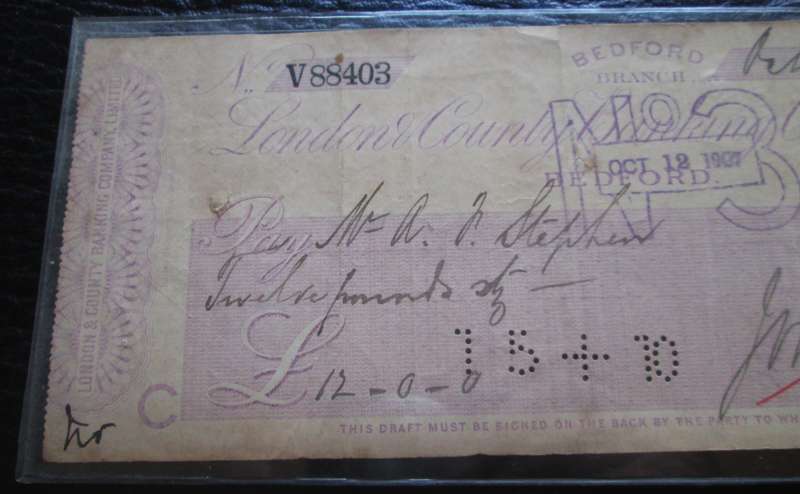 LONDON & COUNTY BANKING COMPANY, LIMITED
No. V88403
BEDFORD
BRANCH
London & County Banking
No 3
OCT 12 1907
BEDFORD.
Pay Mr A. F. Stephen
Twelve pounds stg —
£ 12 - 0 - 0
15+70
C
THIS DRAFT MUST BE SIGNED ON THE BACK BY THE PARTY TO WH